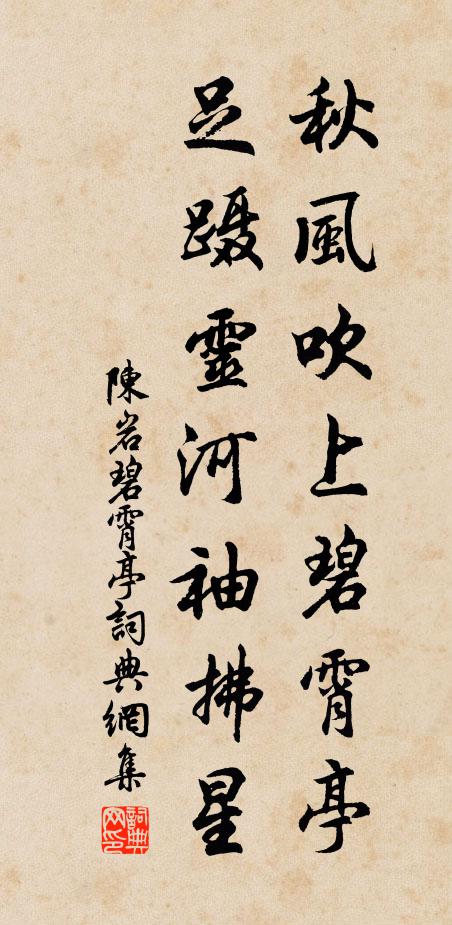 秋風吹上碧霄亭
足蹑靈河袖拂星
陳岩碧霄亭詞典網集
詞典网印